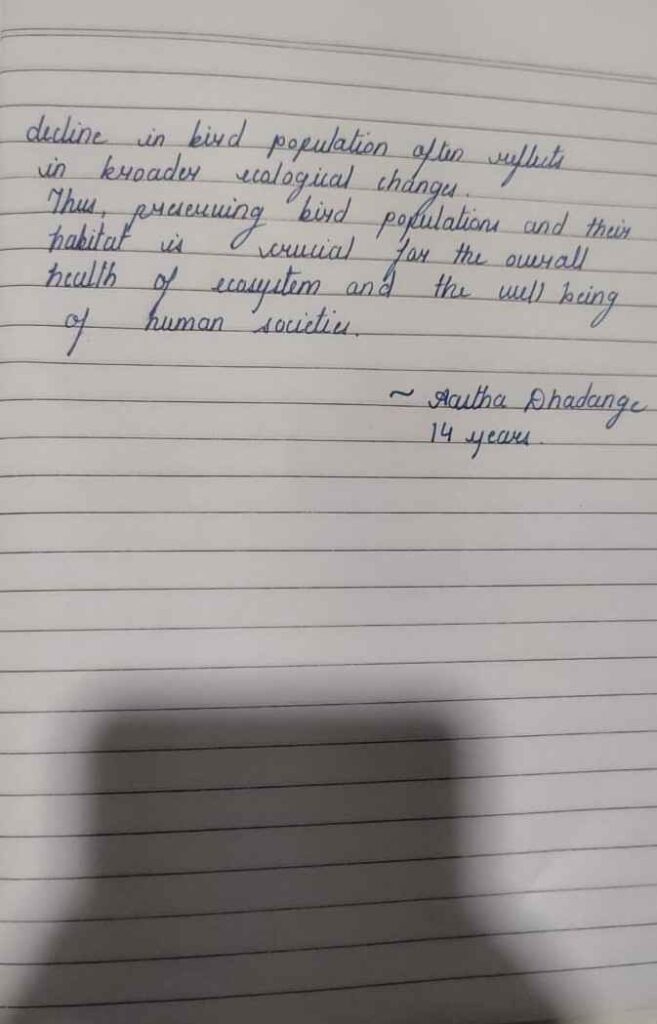 decline in bird population often reflects
in broader ecological changes.
Thus, preserving bird populations and their
habitat is crucial for the overall
health of ecosystem and the well being
of human societies.
~ Astha Dhadange
14 years.